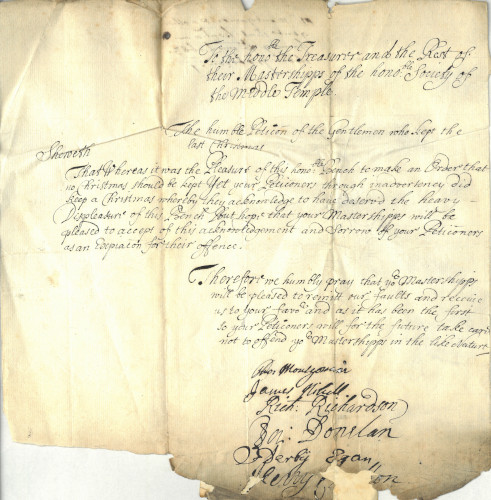 To the hono^ble the Treasurer and the Rest of
their Mastershipps of the hono^ble Society of
the Middle Temple.
The humble Peticon of the Gentlemen who kept the
last Christmas
Sheweth
That Whereas it was the Pleasure of this hono^ble Bench to make an Order that
no Christmas should be kept Yet your Peticoners through inadvertency did
keep a Christmas whereby they acknowledge to have deserv'd the heavy
Displeasure of this Bench but hope that your Mastershipps will be
pleased to accept of this acknowledgment and Sorrow of your Peticoners
as an Expiacon for their offence.
Therefore we humbly pray that yo^r Mastershipps
will be pleased to remitt our faults and receive
us to your favo^r and as it has been the first
so your Peticoners will for the future take care
not to offend yo^r Mastershipps in the like Nature
Montgomerie
James
Rich: Richardson
Donelan
Derby Egan
Henry